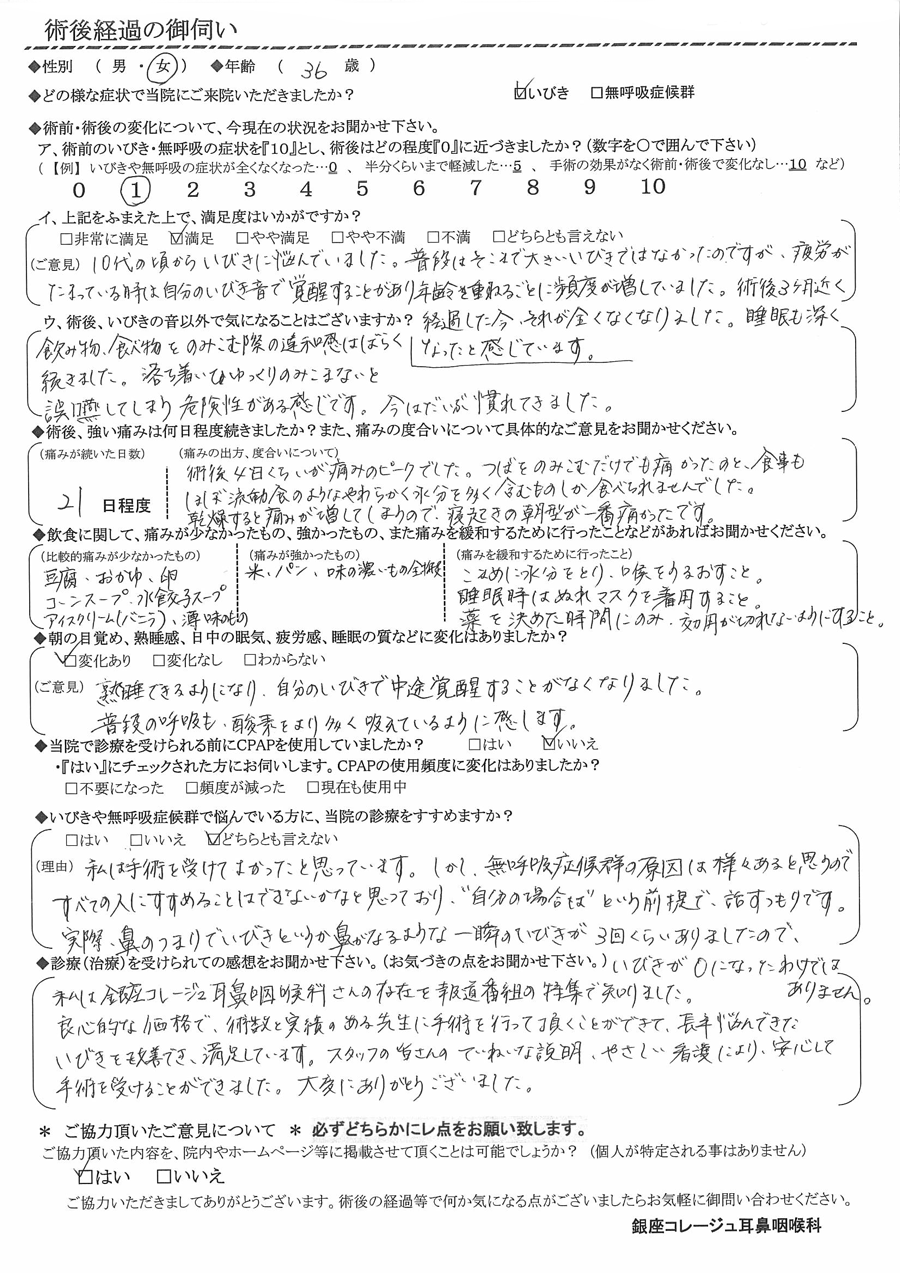 術後経過の御伺い
◆性別 （ 男 ・ 女 ） ◆年齢 （ 36 歳 ）
◆どの様な症状で当院にご来院いただきましたか？ ☑いびき □無呼吸症候群
◆術前・術後の変化について、今現在の状況をお聞かせ下さい。
ア、術前のいびき・無呼吸の症状を『10』とし、術後はどの程度『0』に近づきましたか？（数字を〇で囲んで下さい）
（【例】 いびきや無呼吸の症状が全くなくなった…0 、 半分くらいまで軽減した…5 、 手術の効果がなく術前・術後で変化なし…10 など）
0 1 2 3 4 5 6 7 8 9 10
イ、上記をふまえた上で、満足度はいかがですか？
□非常に満足 ☑満足 □やや満足 □やや不満 □不満 □どちらとも言えない
（ご意見） 10代の頃からいびきに悩んでいました。普段はそこまで大きいいびきではなかったのですが、疲労が
たまっている時は自分のいびき音で覚醒することがあり年齢を重ねるごとに頻度が増していました。術後3ヶ月近く
経過した今、それが全くなくなりました。睡眠も深く
なったと感じています。
ウ、術後、いびきの音以外で気になることはございますか？
飲み物、食べ物をのみこむ際の違和感はしばらく
続きました。落ち着いてゆっくりのみこまないと
誤嚥してしまう危険性がある感じです。今はだいぶ慣れてきました。
◆術後、強い痛みは何日程度続きましたか？また、痛みの度合いについて具体的なご意見をお聞かせください。
（痛みが続いた日数） （痛みの出方、度合いについて）
21 日程度
術後4日くらいが痛みのピークでした。つばをのみこむだけでも痛かったのと、食事も
ほぼ流動食のようなやわらかく水分を多く含むものしか食べられませんでした。
乾燥すると痛みが増してしまうので、寝起きの朝型が一番痛かったです。
◆飲食に関して、痛みが少なかったもの、強かったもの、また痛みを緩和するために行ったことなどがあればお聞かせください。
（比較的痛みが少なかったもの） （痛みが強かったもの） （痛みを緩和するために行ったこと）
豆腐、おかゆ、卵
コーンスープ、水餃子スープ
アイスクリーム(バニラ)、薄味のもの
米、パン、味の濃いもの全般
こまめに水分をとり、喉をうるおすこと。
睡眠時はぬれマスクを着用すること。
薬を決めた時間にのみ、効用が切れないようにすること。
◆朝の目覚め、熟睡感、日中の眠気、疲労感、睡眠の質などに変化はありましたか？
☑変化あり □変化なし □わからない
（ご意見） 熟睡できるようになり、自分のいびきで中途覚醒することがなくなりました。
普段の呼吸も、酸素をより多く吸えているように感じます。
◆当院で診療を受けられる前にCPAPを使用していましたか？ □はい ☑いいえ
・『はい』にチェックされた方にお伺いします。CPAPの使用頻度に変化はありましたか？
□不要になった □頻度が減った □現在も使用中
◆いびきや無呼吸症候群で悩んでいる方に、当院の診療をすすめますか？
□はい □いいえ ☑どちらとも言えない
（理由） 私は手術を受けてよかったと思っています。しかし、無呼吸症候群の原因は様々あると思うので
すべての人にすすめることはできないかなと思っており、“自分の場合は”という前提で、話すつもりです。
実際、鼻のつまりでいびきというか鼻がなるような一瞬のいびきが3回くらいありましたので、
いびきが0になったわけでは
ありません。
◆診療（治療）を受けられての感想をお聞かせ下さい。（お気づきの点をお聞かせ下さい。）
私は銀座コレージュ耳鼻咽喉科さんの存在を報道番組の特集で知りました。
良心的な価格で、術数と実績のある先生に手術を行って頂くことができて、長年悩んできた
いびきを改善でき、満足しています。スタッフの皆さんのていねいな説明、やさしい看護により、安心して
手術を受けることができました。大変にありがとうございました。
＊ ご協力頂いたご意見について ＊ 必ずどちらかにレ点をお願い致します。
ご協力頂いた内容を、院内やホームページ等に掲載させて頂くことは可能でしょうか？ （個人が特定される事はありません）
☑はい □いいえ
ご協力いただきましてありがとうございます。術後の経過等で何か気になる点がございましたらお気軽に御問い合わせください。
銀座コレージュ耳鼻咽喉科